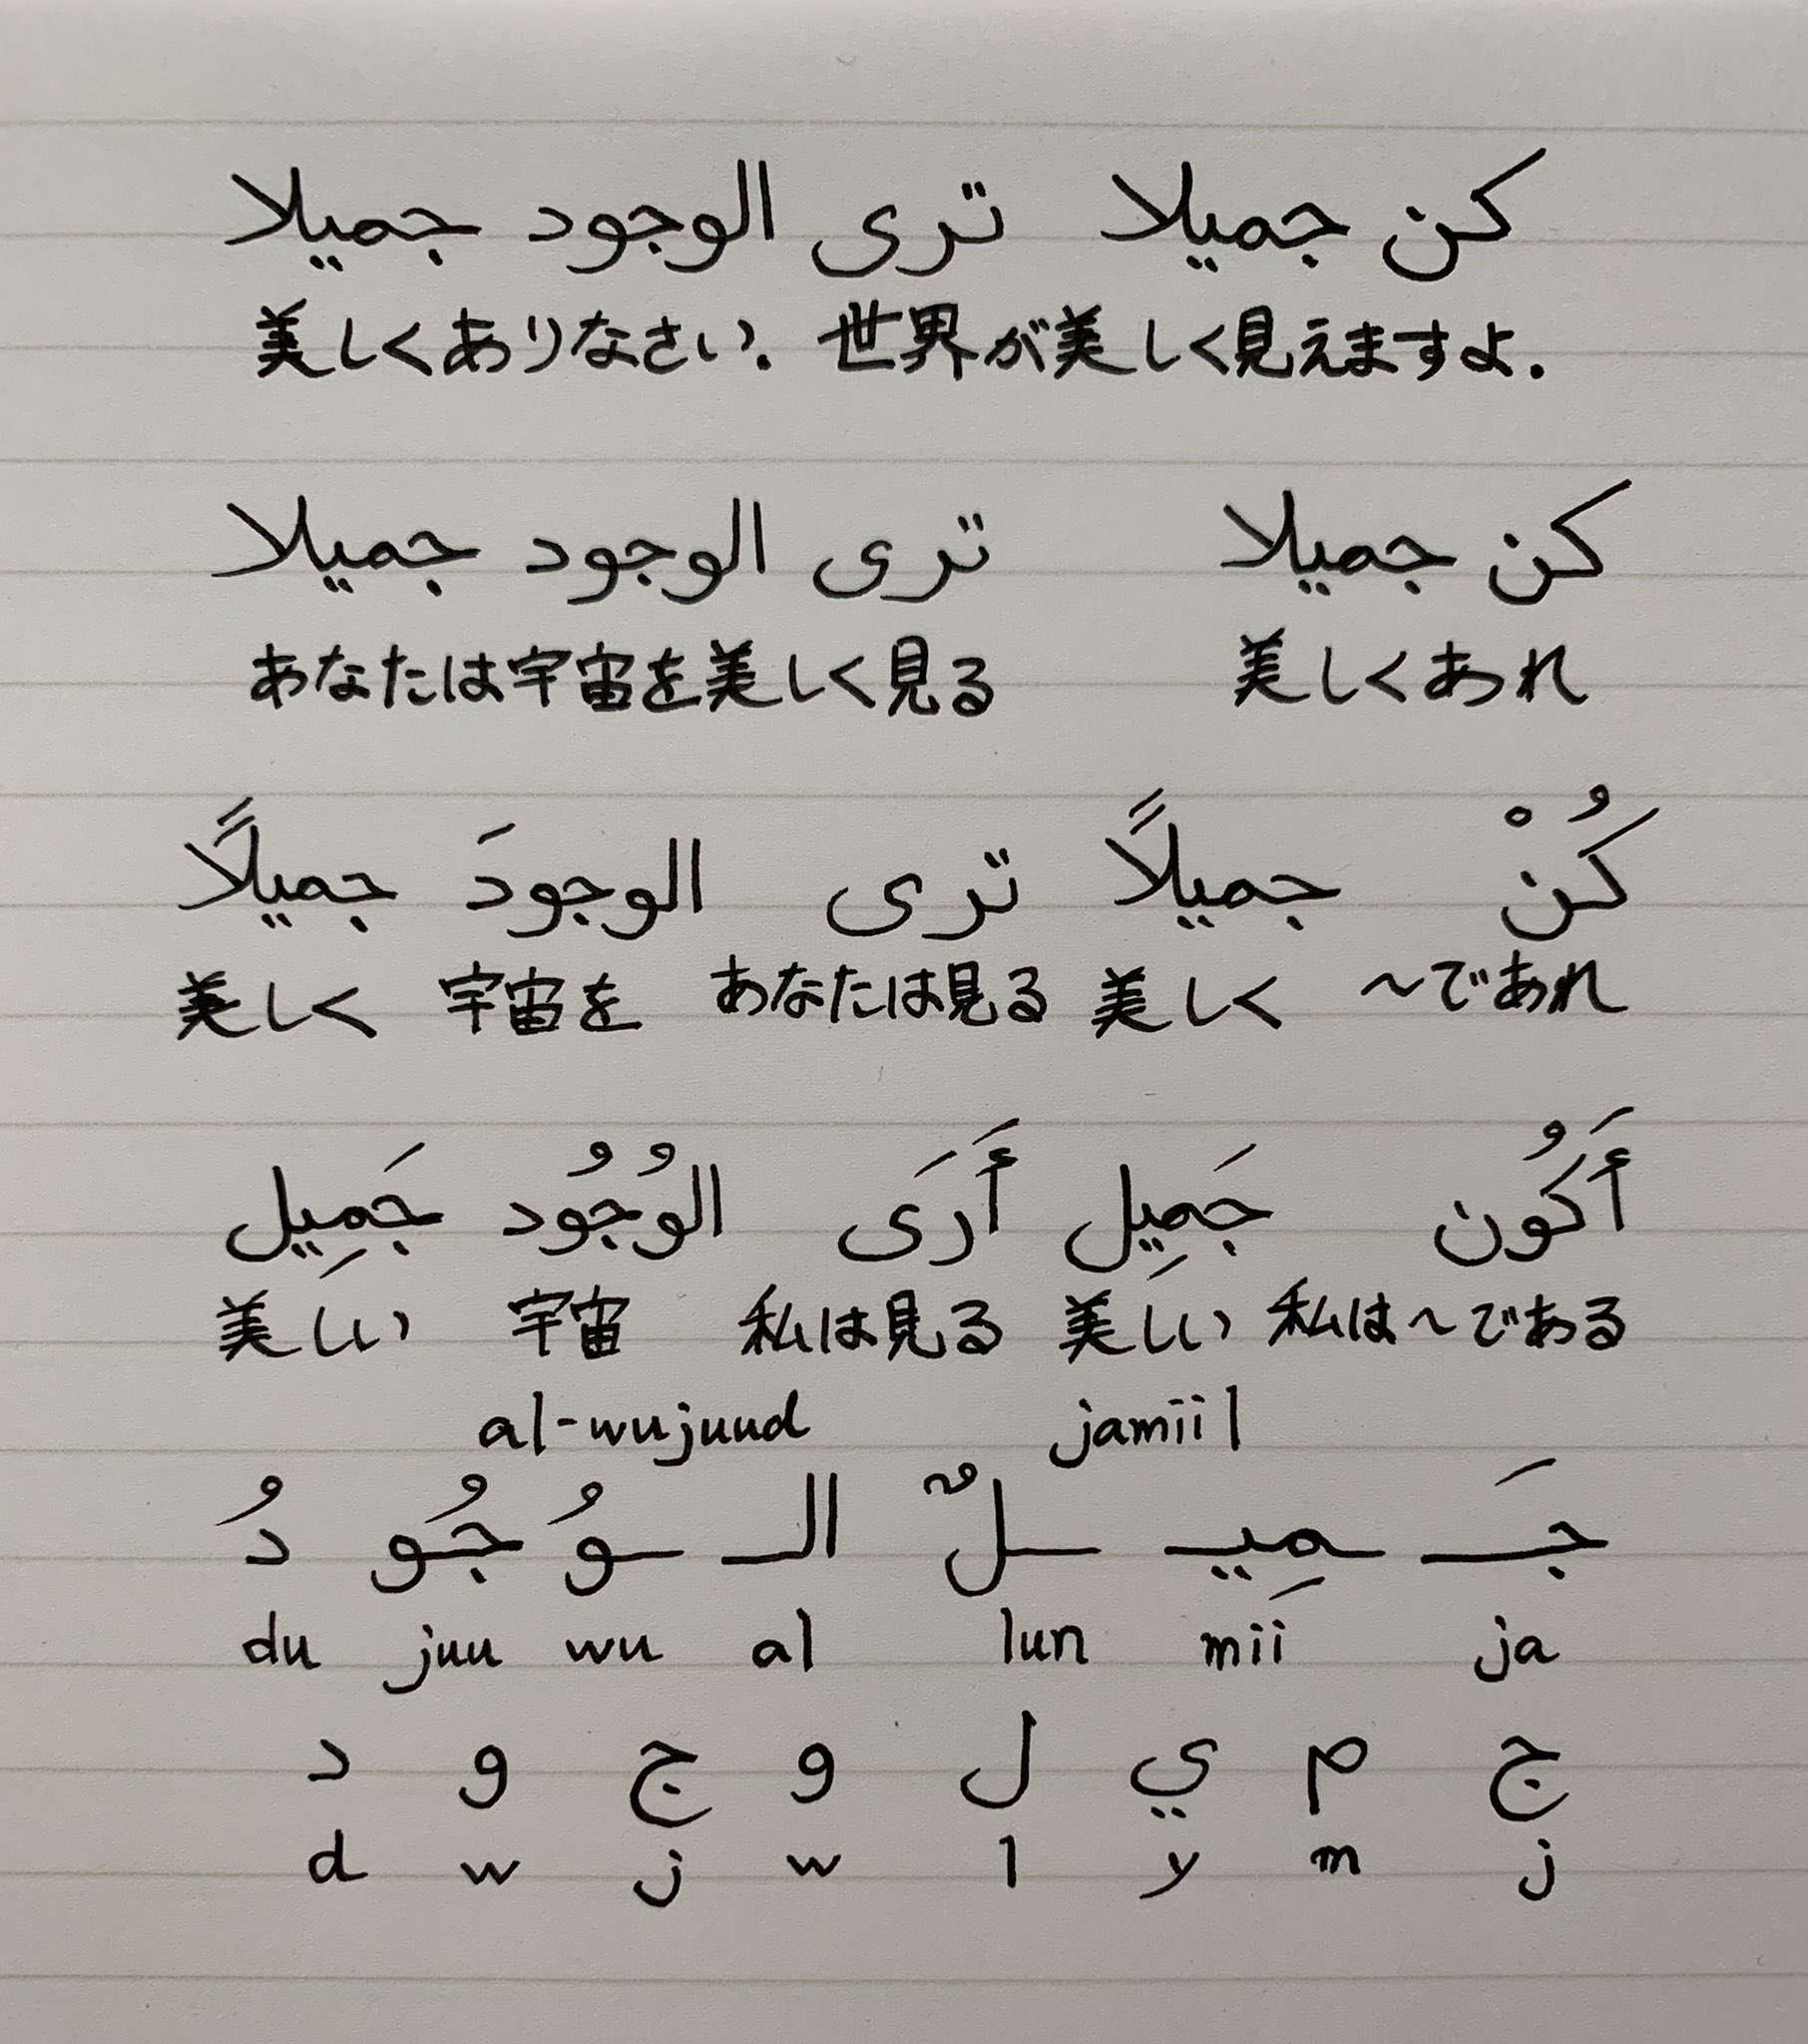 كن جميلا ترى الوجود جميلا
美しくありなさい. 世界が美しく見えますよ.
كن جميلا ترى الوجود جميلا
あなたは宇宙を美しく見る 美しくあれ
كُنْ جميلاً ترى الوجودَ جميلاً
美しく 宇宙を あなたは見る 美しく ～であれ
أَكُون جَمِيل أَرَى الوُجُود جَمِيل
美しい 宇宙 私は見る 美しい 私は～である
al-wujuud jamiil
جَـ ـمِيـ ـلٌ الـ ـوُ جُو دُ
du juu wu al lun mii ja
ج م ي ل و ج و د
d w j w l y m j